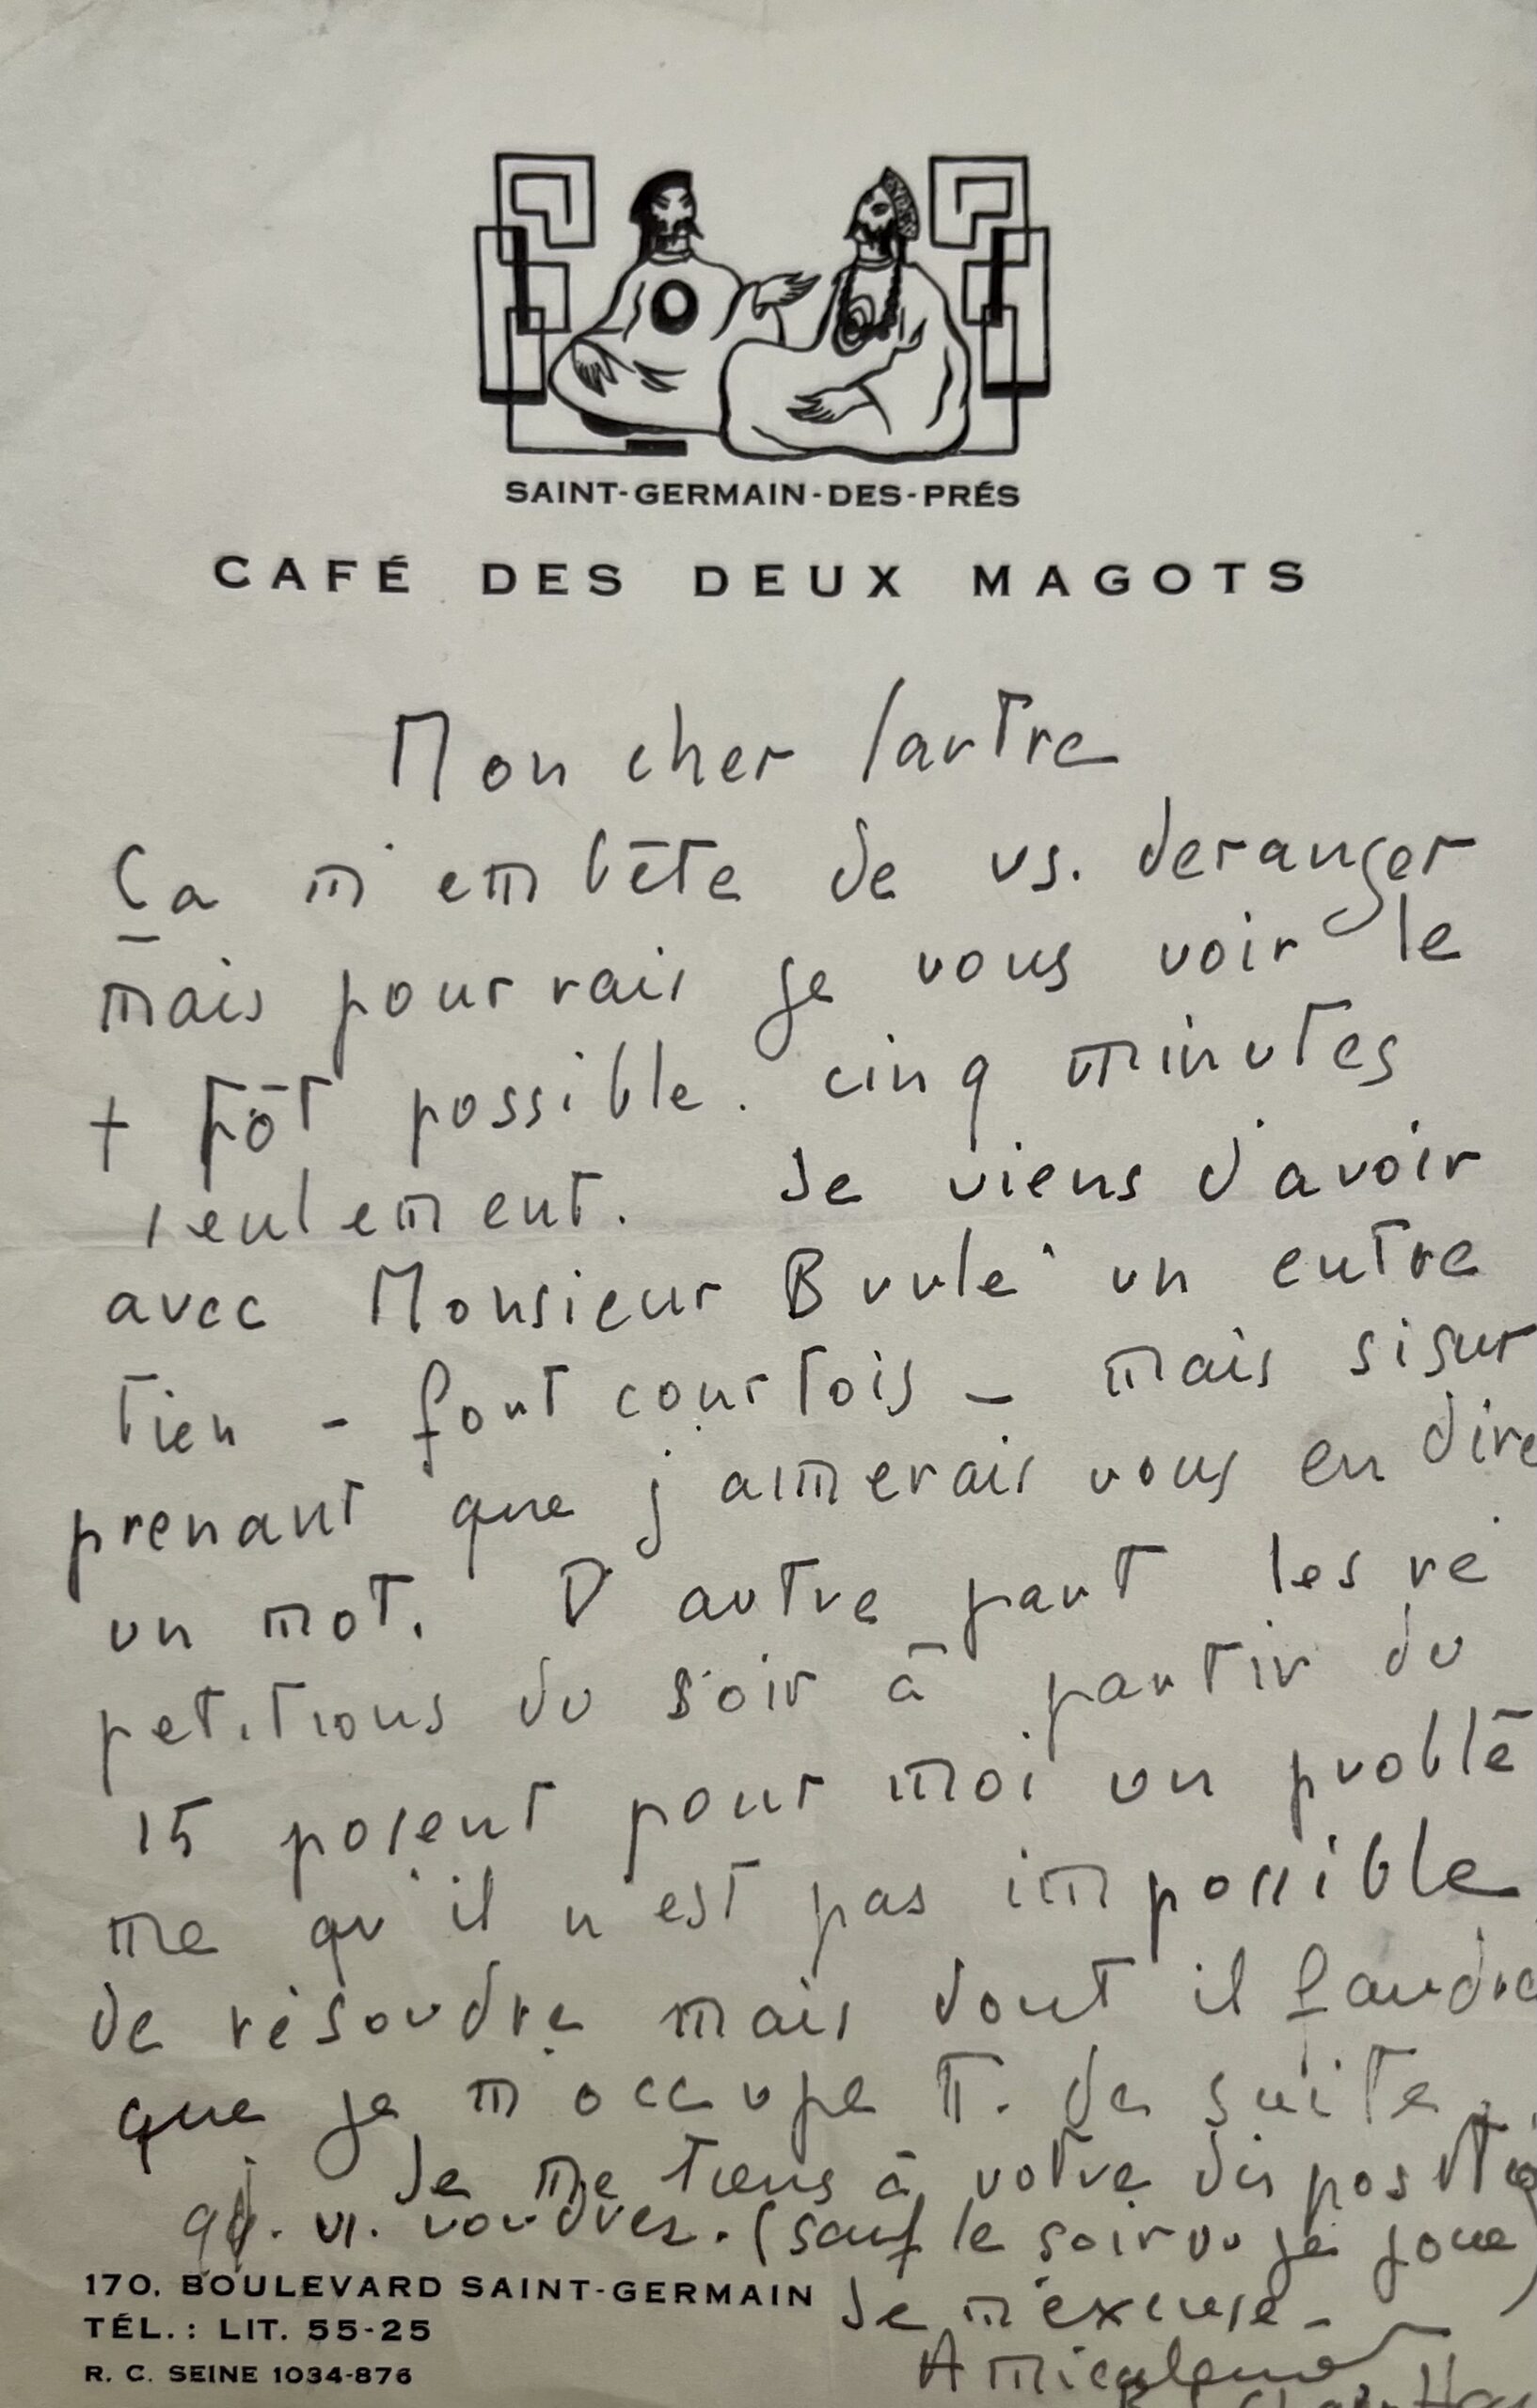 SAINT-GERMAIN-DES-PRÉS
CAFÉ DES DEUX MAGOTS
Mon cher Sartre
Ça m'embête de vs. deranger
mais pourrais je vous voir le
+ tôt possible. cinq minutes
seulement. Je viens d'avoir
avec Monsieur un entre
tien - fort courtois - mais si sur
prenant que j'aimerais vous en dire
un mot. D'autre part les ré
petitions du soir à partir du
15 posent pour moi un problè
me qu'il n'est pas impossible
de résoudre mais dont il faudra
que je m'occupe tt. de suite.
Je me tiens à votre dispositio
qd. vs. voudrez. (sauf le soir où je joue)
170, BOULEVARD SAINT-GERMAIN Je m'excuse -
TÉL. : LIT. 55-25
R. C. SEINE 1034-876